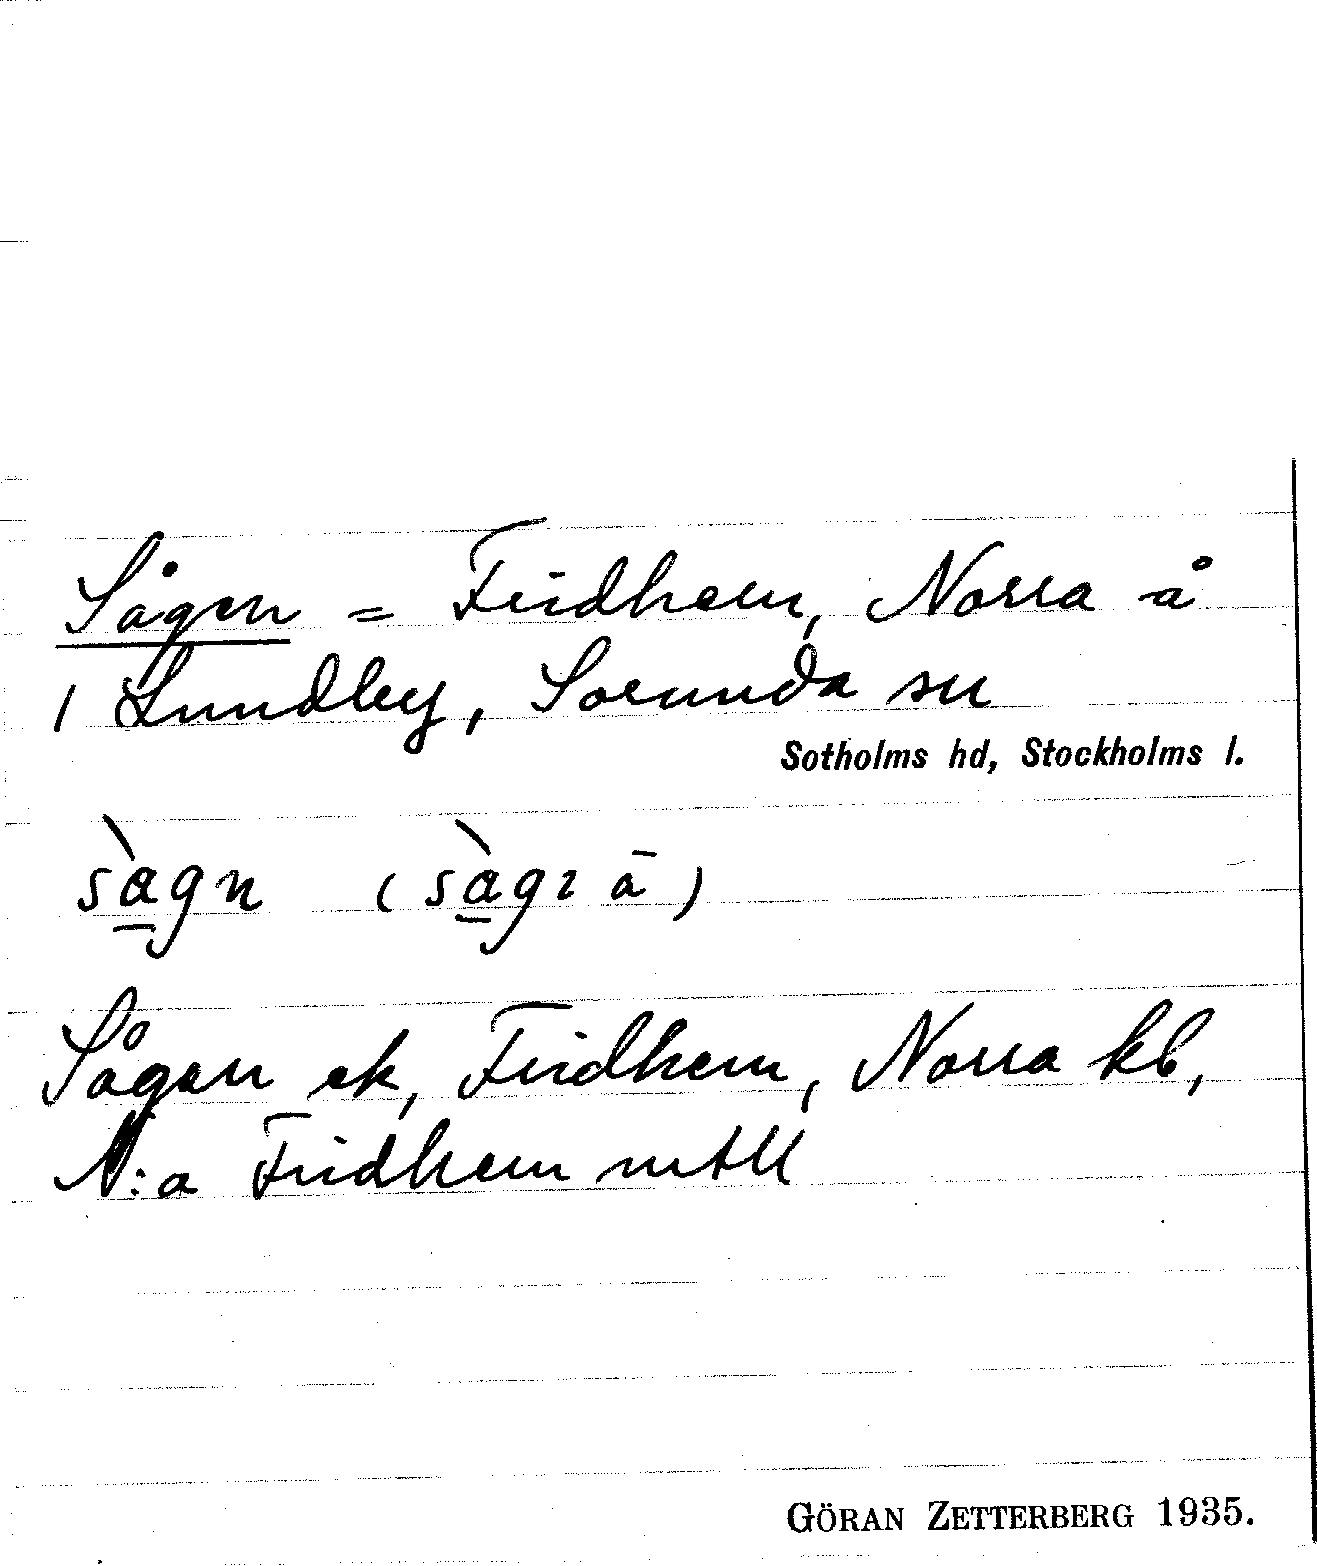 Sågen = Fridhem, Norra å
i Lundby, Sorunda sn
Sotholms hd, Stockholms l.
sàgn (sàgı ā)
Sågen ek, Fridhem, Norra kb,
N:a Fridhem mtll
GÖRAN ZETTERBERG 1935.